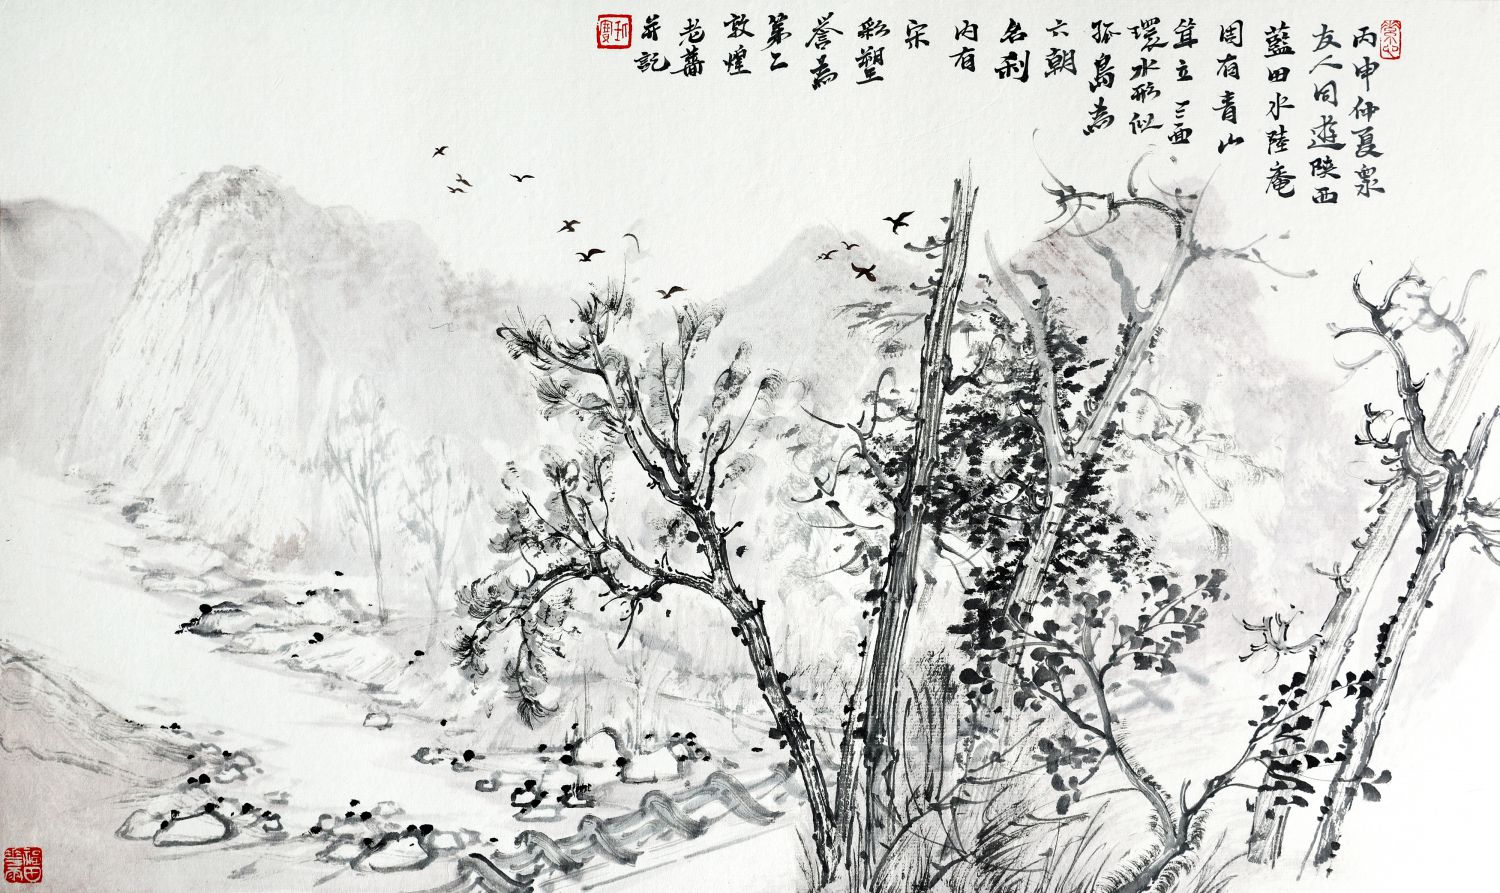 丙申仲夏眾
友人同遊陝西
藍田水陸庵
周有青山
聳立三面
環水形似
孤島為
六朝
名刹
内有
宋
彩塑
譽為
第二
敦煌
老蕭
并記